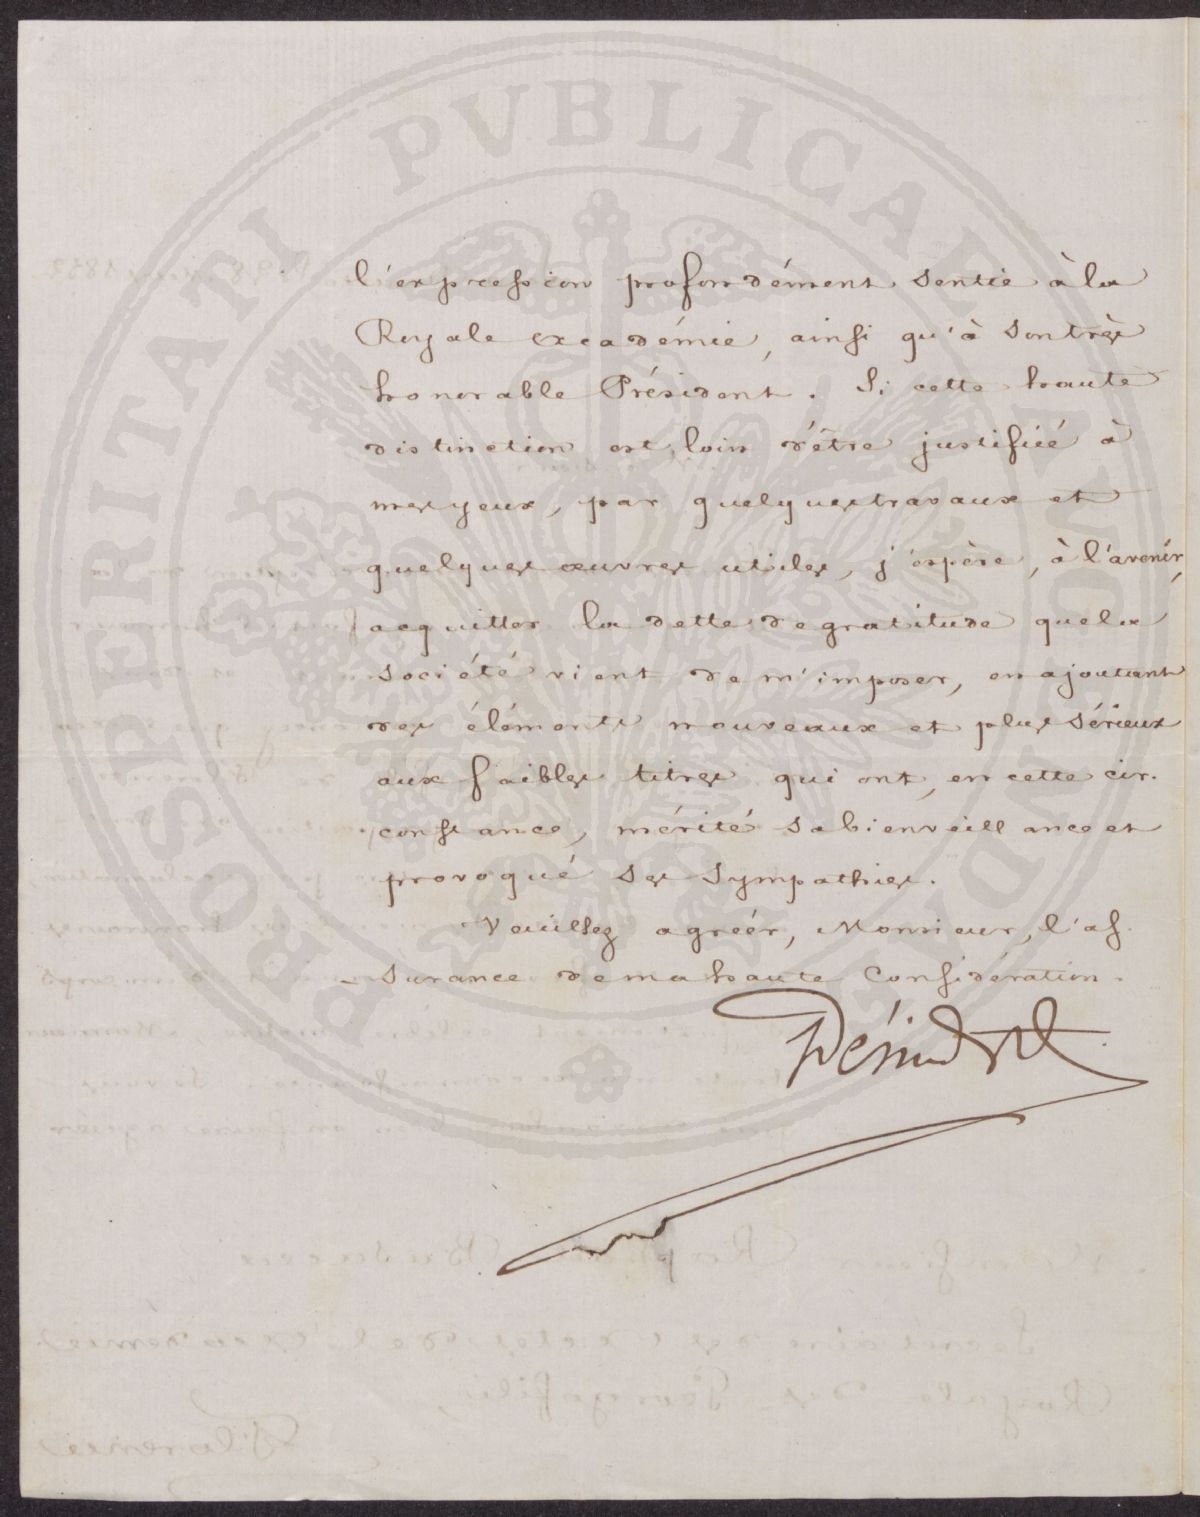 PROSPERITATI PVBLICAE AVGENDAE
l'expression profondément sentie à la
Royale académie, ainsi qu'à son très
honorable Président. Si cette haute
distinction est loin d'être justifiée à
mes yeux, par quelques travaux et
quelques œuvres utiles, j'espère, à l'avenir,
acquitter la dette de gratitude que la
société vient de m'imposer, en ajoutant
des éléments nouveaux et plus sérieux
aux faibles titres qui ont, en cette cir-
constance, mérité sa bienveillance et
provoqué ses sympathies.
Veuillez agréer, Monsieur, l'as-
surance de ma haute Considération.